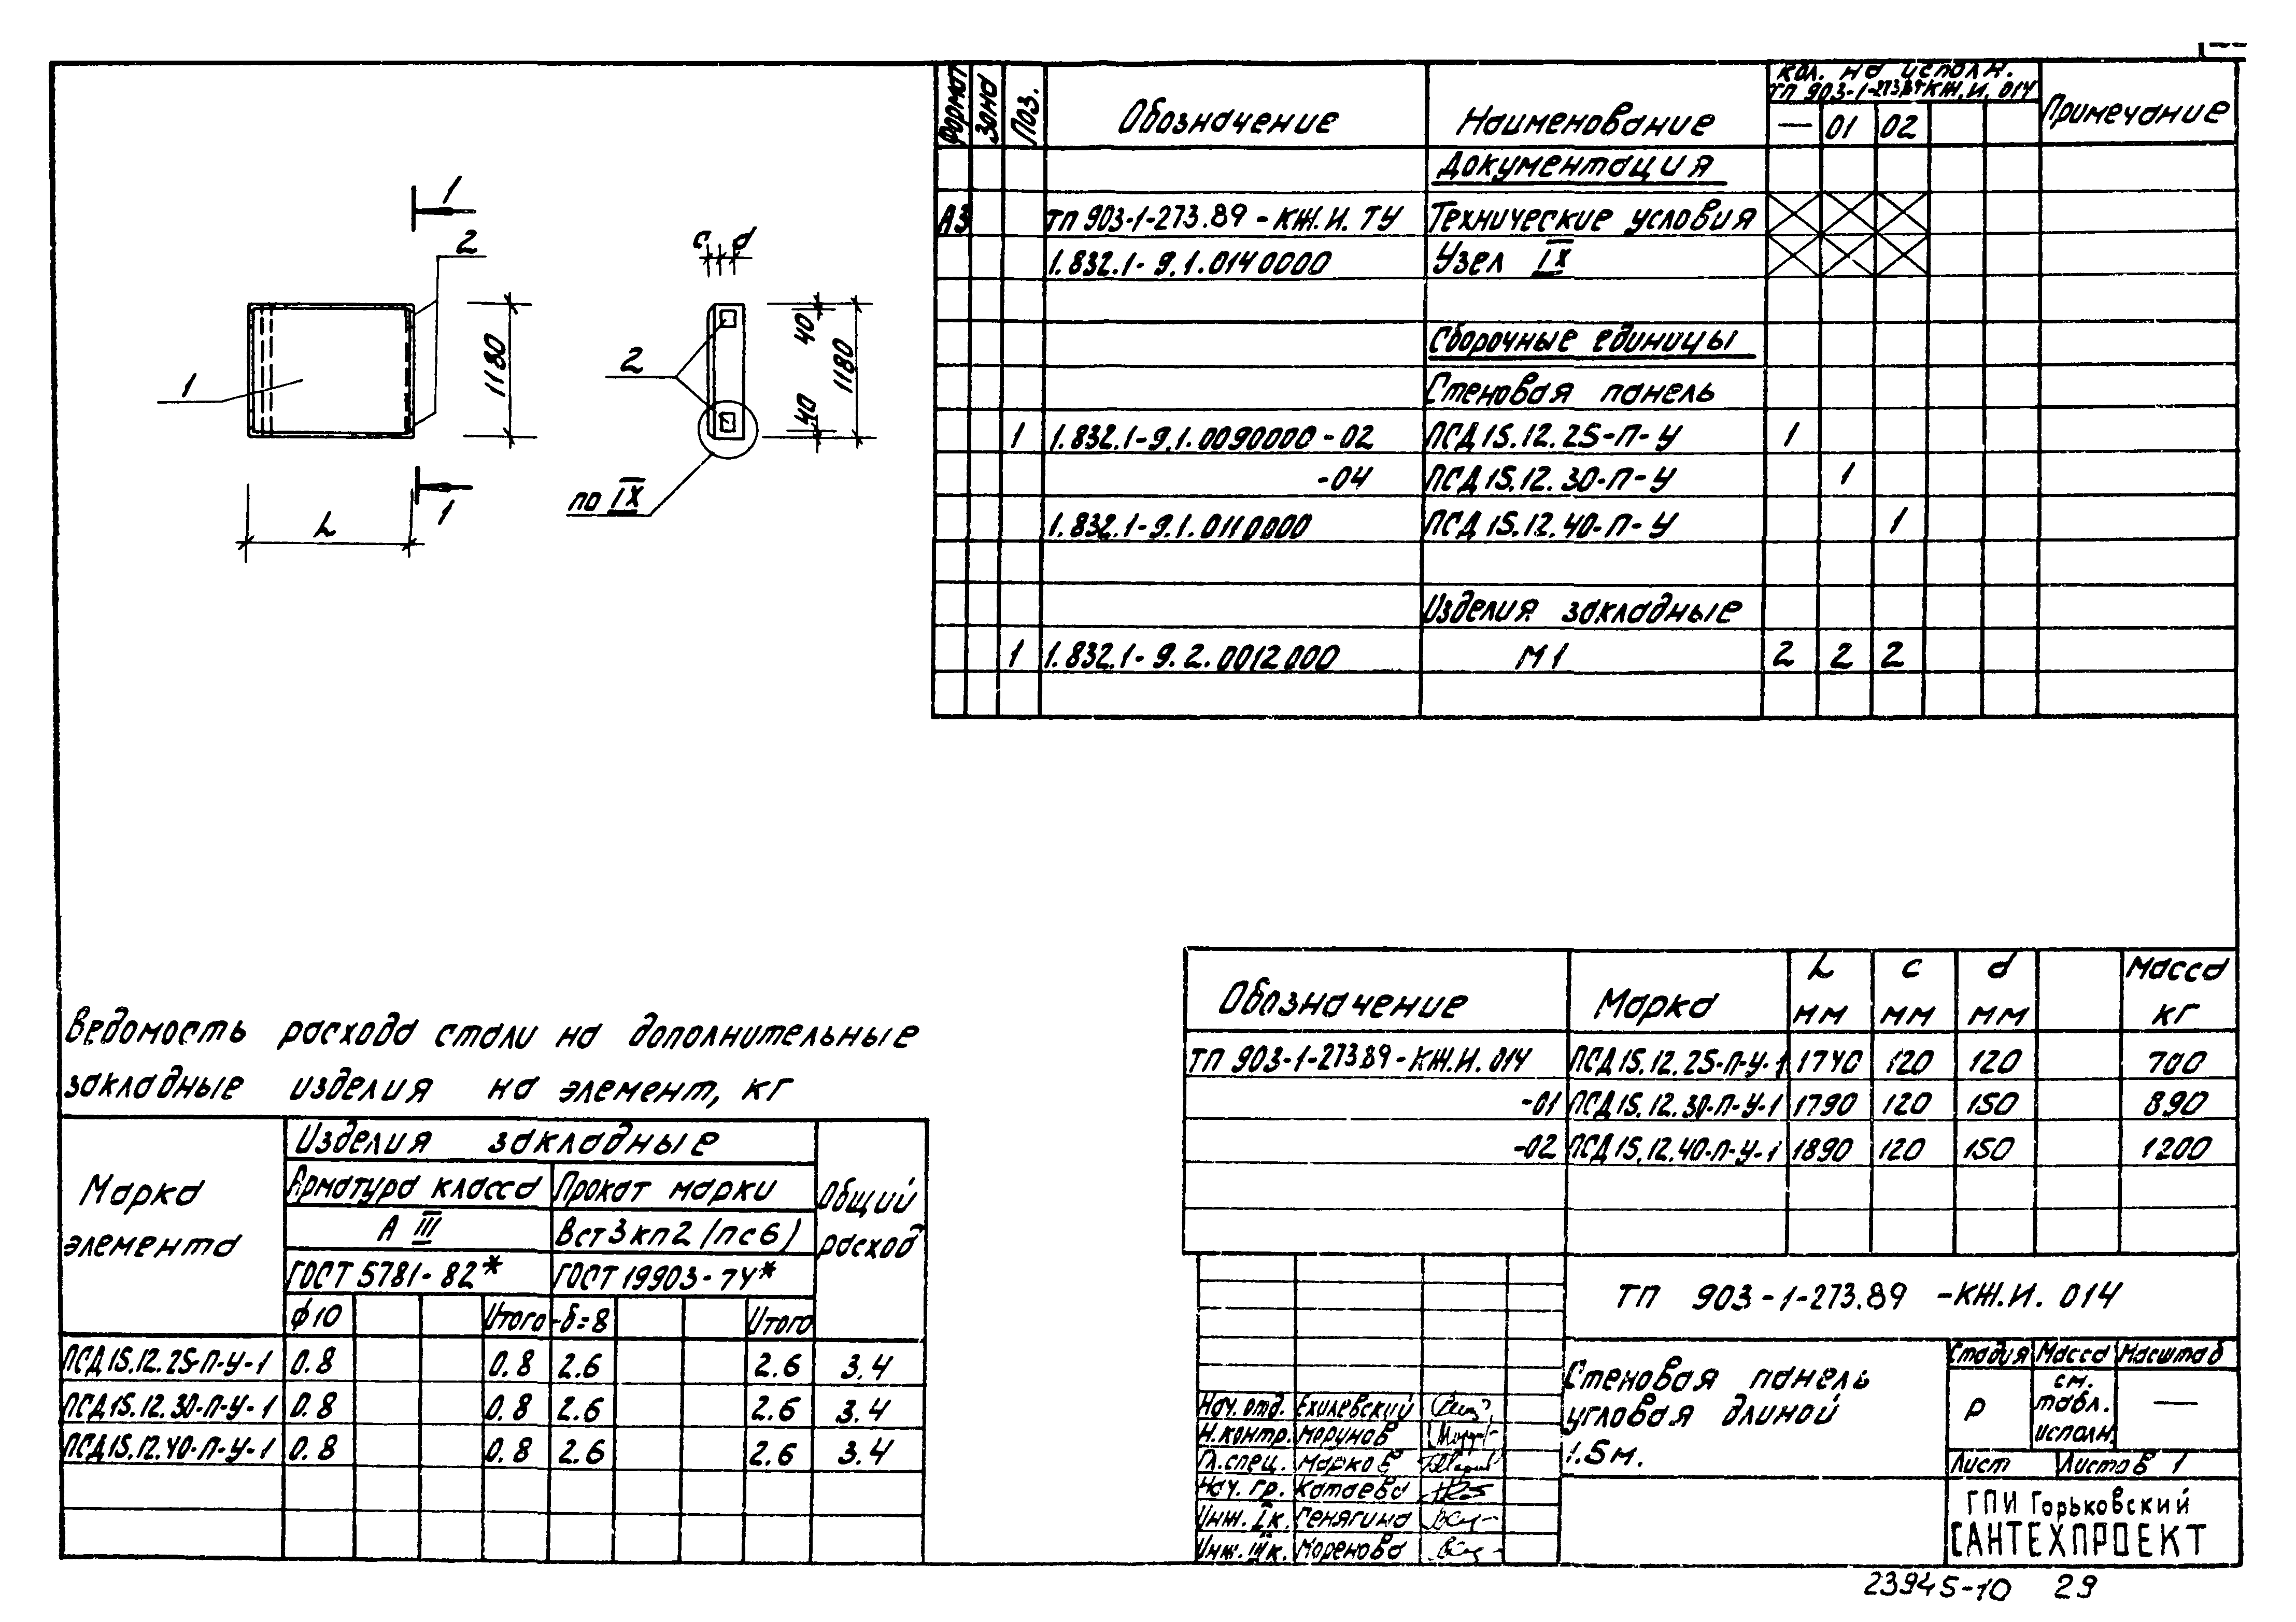 Формат Зона Поз. Обозначение Наименование Кол. на исполн. Примечание
ТП 903-1-273.89 КЖ.И. 014
— 01 02
Документация
А3 ТП 903-1-273.89 - КЖ.И. ТУ Технические условия
1.832.1-9.1.0140000 Узел IX
Сборочные единицы
Стеновая панель
1 1.832.1-9.1.0090000-02 ПСД 15.12.25-П-У 1
-04 ПСД 15.12.30-П-У 1
1.832.1-9.1.0110000 ПСД 15.12.40-П-У 1
Изделия закладные
1 1.832.1-9.2.0012000 М1 2 2 2
1
2
1
1180
L
1
c d
2
40
40
1180
по IX
Обозначение Марка L мм c мм d мм Масса кг
ТП 903-1-273.89-КЖ.И. 014 ПСД 15.12.25-П-У-1 1740 120 120 700
-01 ПСД 15.12.30-П-У-1 1790 120 150 890
-02 ПСД 15.12.40-П-У-1 1890 120 150 1200
Ведомость расхода стали на дополнительные
закладные изделия на элемент, кг
Марка элемента Изделия закладные Общий расход
Арматура класса Прокат марки
А III Вст3кп2 (пс6)
ГОСТ 5781-82* ГОСТ 19903-74*
ϕ10 Итого -δ=8 Итого
ПСД 15.12.25-П-У-1 0.8 0.8 2.6 2.6 3.4
ПСД 15.12.30-П-У-1 0.8 0.8 2.6 2.6 3.4
ПСД 15.12.40-П-У-1 0.8 0.8 2.6 2.6 3.4
ТП 903-1-273.89 -КЖ.И. 014
Стеновая панель
угловая длиной
1.5м.
Стадия Масса Масштаб
Р см. табл. исполн. —
Лист Листов 1
Нач. отд. Ехилевский
Н.контр. Морунов
Гл.спец. Марков
Нач. гр. Катаева
Инж. I к. Генягина
Инж. III к. Моренова
ГПИ Горьковский
САНТЕХПРОЕКТ
23945-10 29